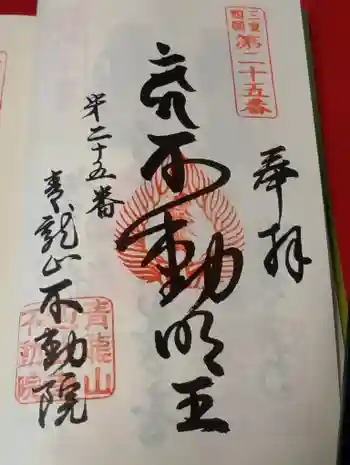 奉拝
三重
四国
第二十五番
荒不動明王
第二十五番
青龍山不動院
青龍山
不動院